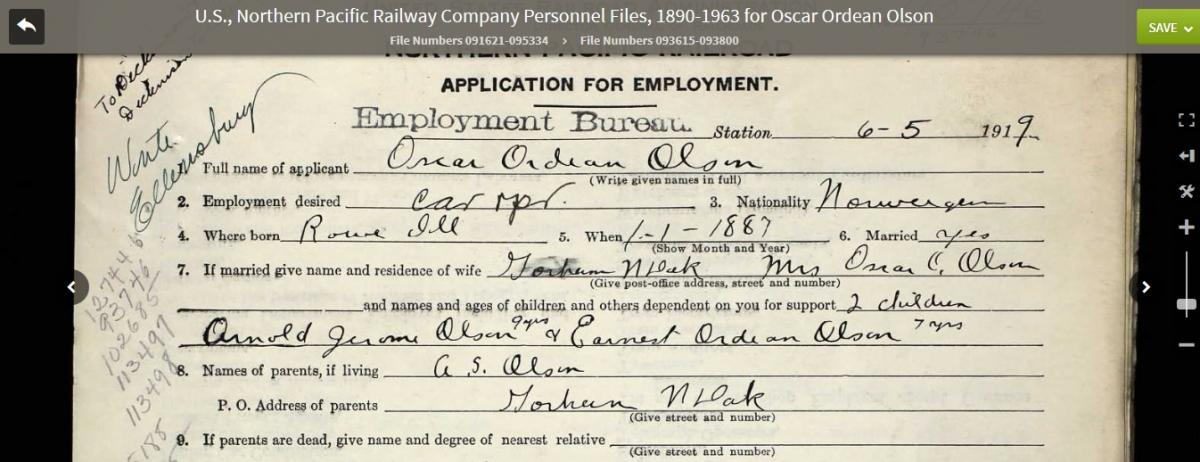 U.S., Northern Pacific Railway Company Personnel Files, 1890-1963 for Oscar Ordean Olson
File Numbers 091621-095334 > File Numbers 093615-093800
SAVE
NORTHERN PACIFIC RAILROAD
APPLICATION FOR EMPLOYMENT.
To Dick
Dickinson
Write
Ellensburg
Employment Bureau. Station 6-5 1919
1. Full name of applicant Oscar Ordean Olson
(Write given names in full)
2. Employment desired Car rpr. 3. Nationality Norwergen
4. Where born Rowe Ill 5. When 1-1-1887 6. Married yes
(Show Month and Year)
7. If married give name and residence of wife Gorham N Dak Mrs Oscar O. Olson
(Give post-office address, street and number)
and names and ages of children and others dependent on you for support 2 children
Arnold Jerome Olson 9 yrs & Earnest Ordean Olson 7 yrs
8. Names of parents, if living A. S. Olson
P. O. Address of parents Gorham N Dak
(Give street and number)
9. If parents are dead, give name and degree of nearest relative
(Give street and number)
93746
102685
113497
113498